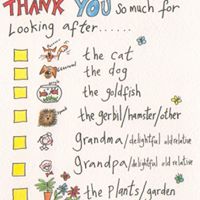 THANK YOU so much for
Looking after......
the cat
the dog
the goldfish
the gerbil/hamster/other
grandma/delightful old relative
grandpa/delightful old relative
the plants/garden